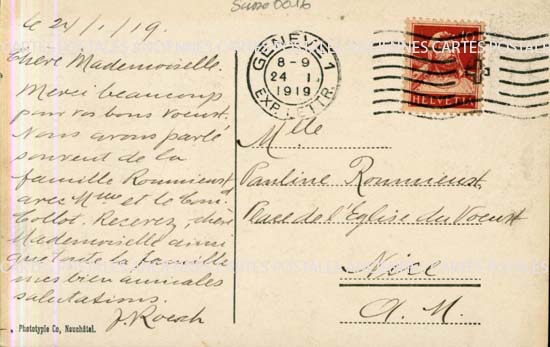 Suisse 0016
le 24/1/19.
Chère Mademoiselle.
Merci beaucoup
pour vos bons voeux.
Nous avons parlé
souvent de la
famille Roumieust
avec Mme et le Com
Collot. Recevez, chère
Mademoiselle ainsi
que toute la famille
mes bien amicales
salutations.
J. Roesch
Phototypie Co, Neuchâtel.
GENÈVE 1
8-9
24 I
1919
EXP. LETTR.
HELVETIA
Mlle
Pauline Roumieust
Place de l'Eglise du Voeu
Nice
A. M.